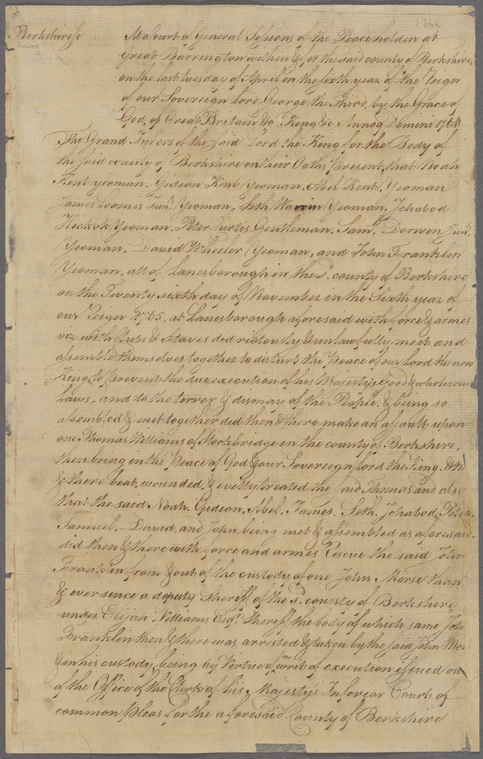 1766
Berkshire ss At a Court of General Sessions of the Peace holden at
Great Barrington within & for the said county of Berkshire
on the last tuesday of April in the sixth year of the Reign
of our Sovereign lord George the third, by the Grace of
God, of Great Britain &c King &c Annoq Domini 1766
The Grand Jurors of the said Lord the King for the Body of
the said county of Berkshire on their Oaths present, that Noah
Kent yeoman, Gideon Kent Yeoman, Abel Kent, Yeoman
James Loomes Junr. Yeoman, Seth Warrin Yeoman, Ichabod
Hickok Yeoman, Peter Curtes Gentleman, Saml. Dorwen Junr.
Yeoman, David Wheeler Yeoman, and John Franklin
Yeoman, all of Lanesborough in the sd. county of Berkshire
on the Twenty sixth day of November in the Sixth year of
our Reign 1765. at Lanesborough aforesaid with force & armes
viz with Clubs & Staves did riotously & unlawfully meet and
assemble themselves together to disturb the Peace of our lord the now
King to prevent the due execution of his Majestys Good & wholesom
Laws, and to the terror & dismay of the People, & being so
assembled & met together did then & there make an assault upon
one Thomas Williams of Stockbredge in the county of Berkshire,
then being in the Peace of God & our Sovereign lord the King, & then
& there beat, wounded, & evilly treated the said Thomas and also
that the said Noah, Gideon, Abel, James, Seth, Ichabod, Peter
Samuel, David, and John being met & assembled as aforesaid
did then & there with force and armes Rescue the said John
Franklin from & out of the custody of one John Morse then
& ever sence a deputy Sheriff of the sd. county of Berkshire
under Elijah Williams Esqr. Sheriff, the body of which same John
Franklin then & there was arrested & taken by the said John Mors
& in his custody, being by Virtue of writ of execution issued out
of the Office of the Clerk of his Majestys Inferear Court of
common Pleas for the aforesaid County of Berkshire